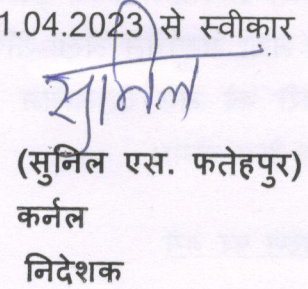 1.04.2023 से स्वीकार
सुनिल
(सुनिल एस. फतेहपुर)
कर्नल
निदेशक